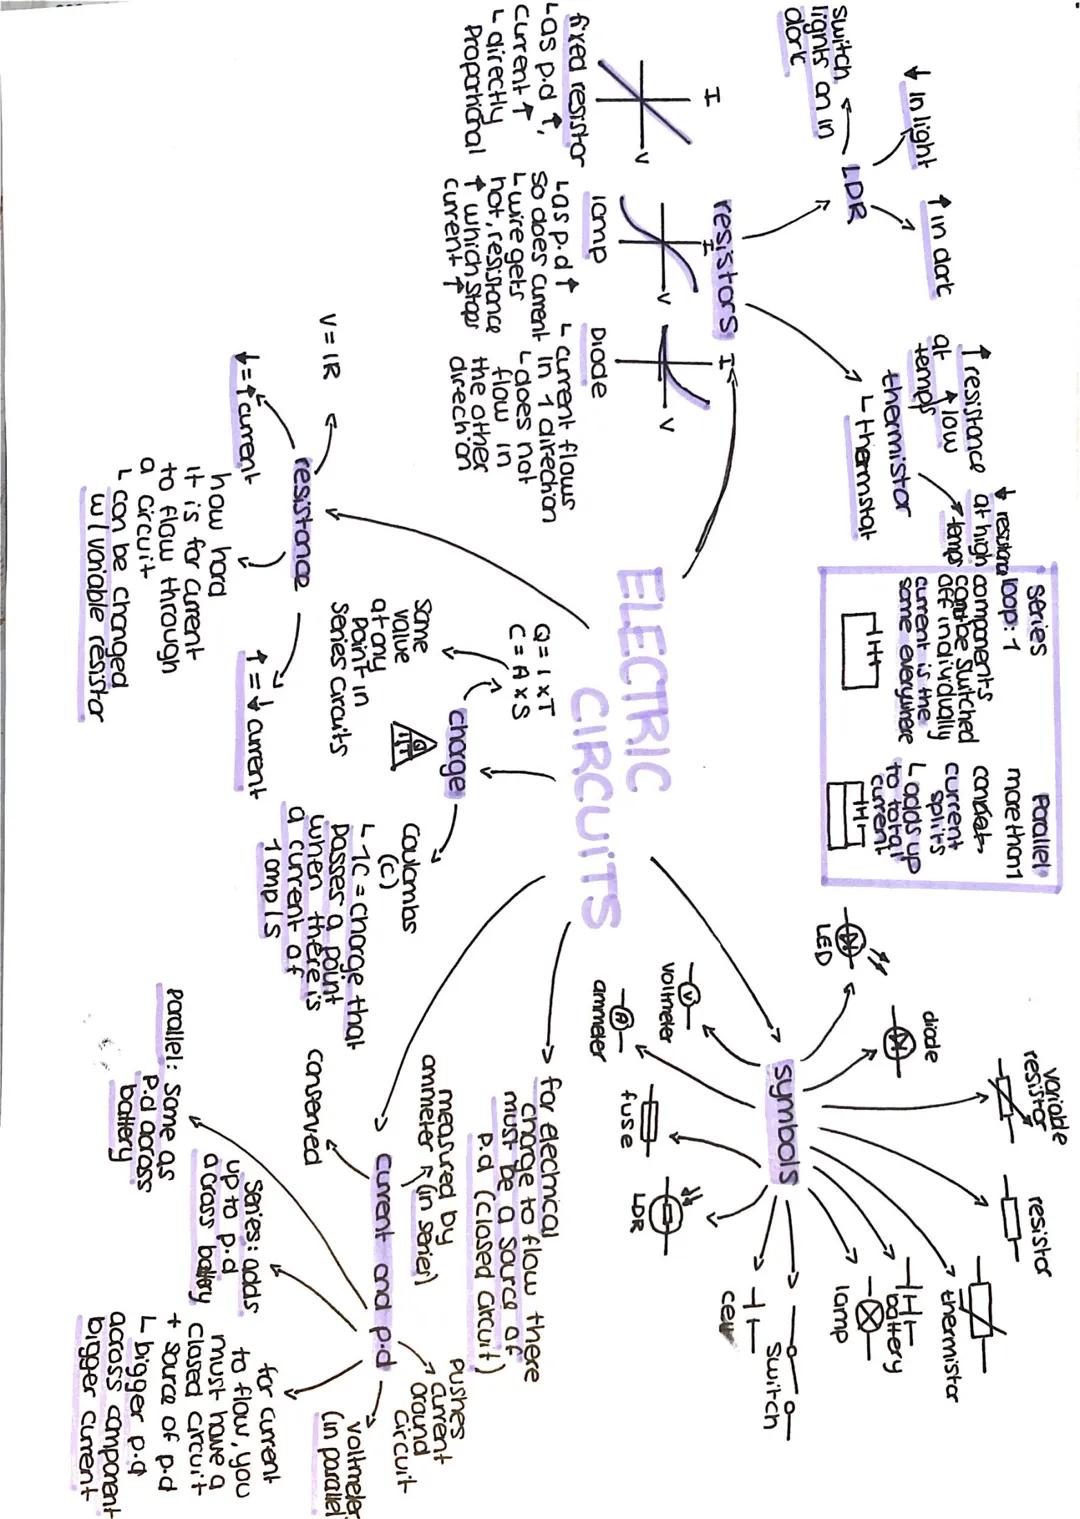 ELECTRIC
CIRCUITS
resistors
LDR
↓ in light
↑ in dark
switch
lights on in
dark
thermistor
↳ thermstat
↑ resistance
at ↓ low
temps
↓
at high
temps
I
V
fixed resistor
↳ as p.d ↑,
current ↑
↳ directly
Proportional
I
V
lamp
↳ as p.d ↑
so does current
↳ wire gets
hot, resistance
↑ which stops
current ↑
I
V
Diode
↳ current flows
in 1 direction
↳ does not
flow in
the other
direction
series
loop: 1
components
switched
off individually
current is the
same everywhere
Parallel
more than 1
current
splits
↳ adds up
to total
current
symbols
LED
diode
variable
resistor
resistor
thermistor
battery
lamp
switch
cell
LDR
fuse
A
ammeter
V
voltmeter
for electrical
charge to flow there
must be a source of
p.d (closed circuit)
current and p.d
measured by
ammeter (in series)
conserved
pushes
current
around
circuit
voltmeter
(in parallel
for current
to flow, you
must have a
closed circuit
+ source of p.d
↳ bigger p.d
across component
bigger current
series: adds
up to p.d
across battery
Parallel: same as
p.d across
battery
charge
Q = I x T
C = A x S
same
value
at any
point in
series circuits
Coulombs
(c)
↳ 1C = charge that
passes a point
when there is
a current of
1 amp/s
resistance
V = IR
↓ = ↑ current
how hard
it is for current
to flow through
a circuit
↳ can be changed
w/ variable resistor
↑ = ↓ current